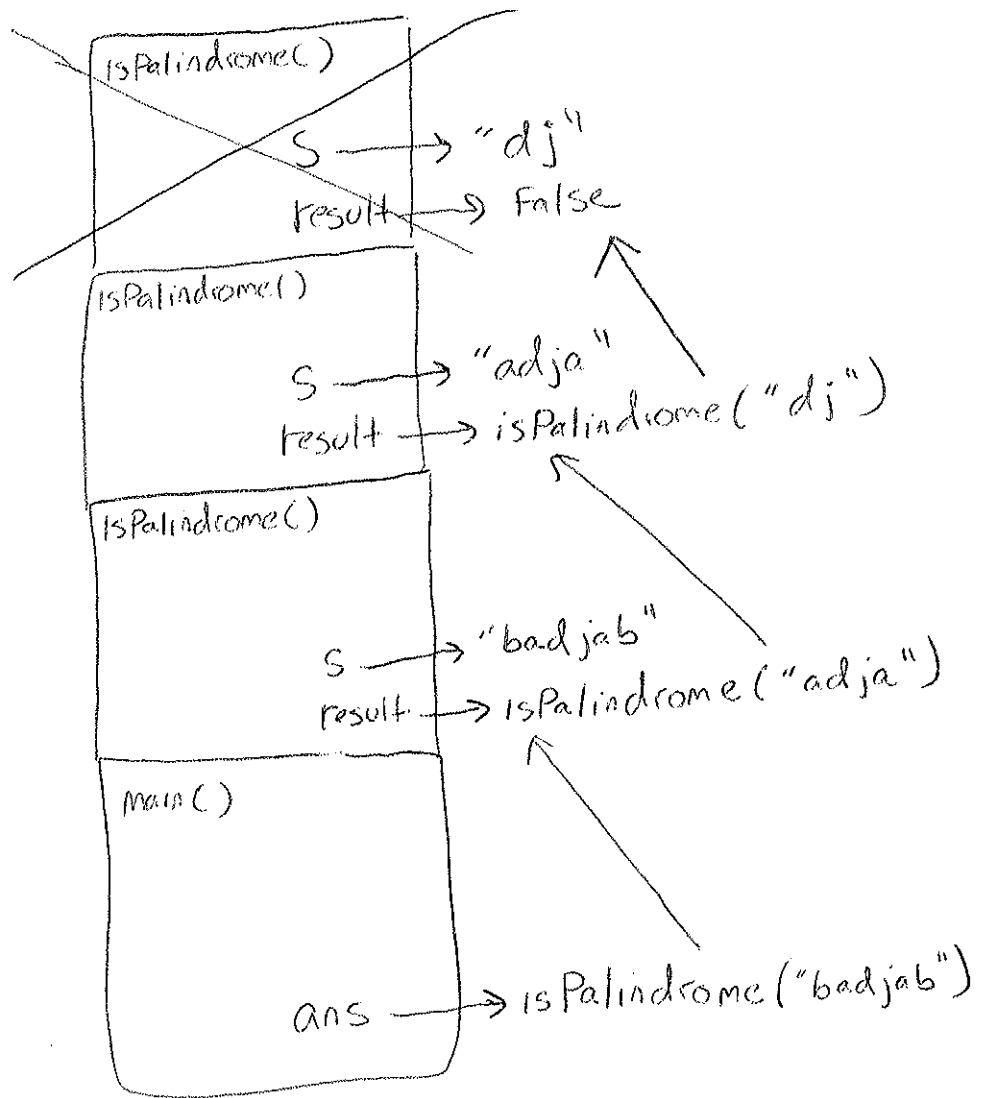 isPalindrome()
S → "dj"
result → False
isPalindrome()
S → "adja"
result → isPalindrome("dj")
isPalindrome()
S → "badjab"
result → isPalindrome("adja")
main()
ans → isPalindrome("badjab")